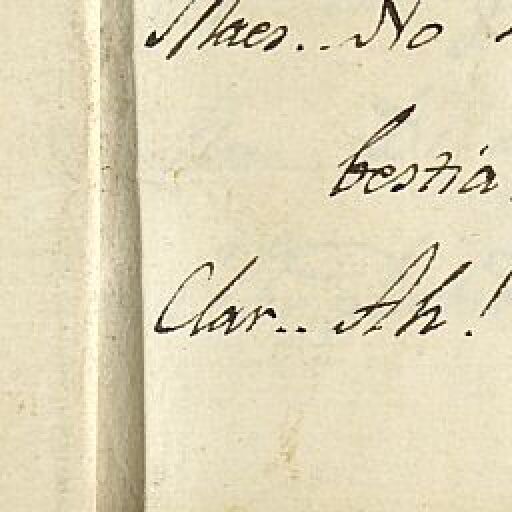 Maes.. No
bestia
Clar.. Ah!